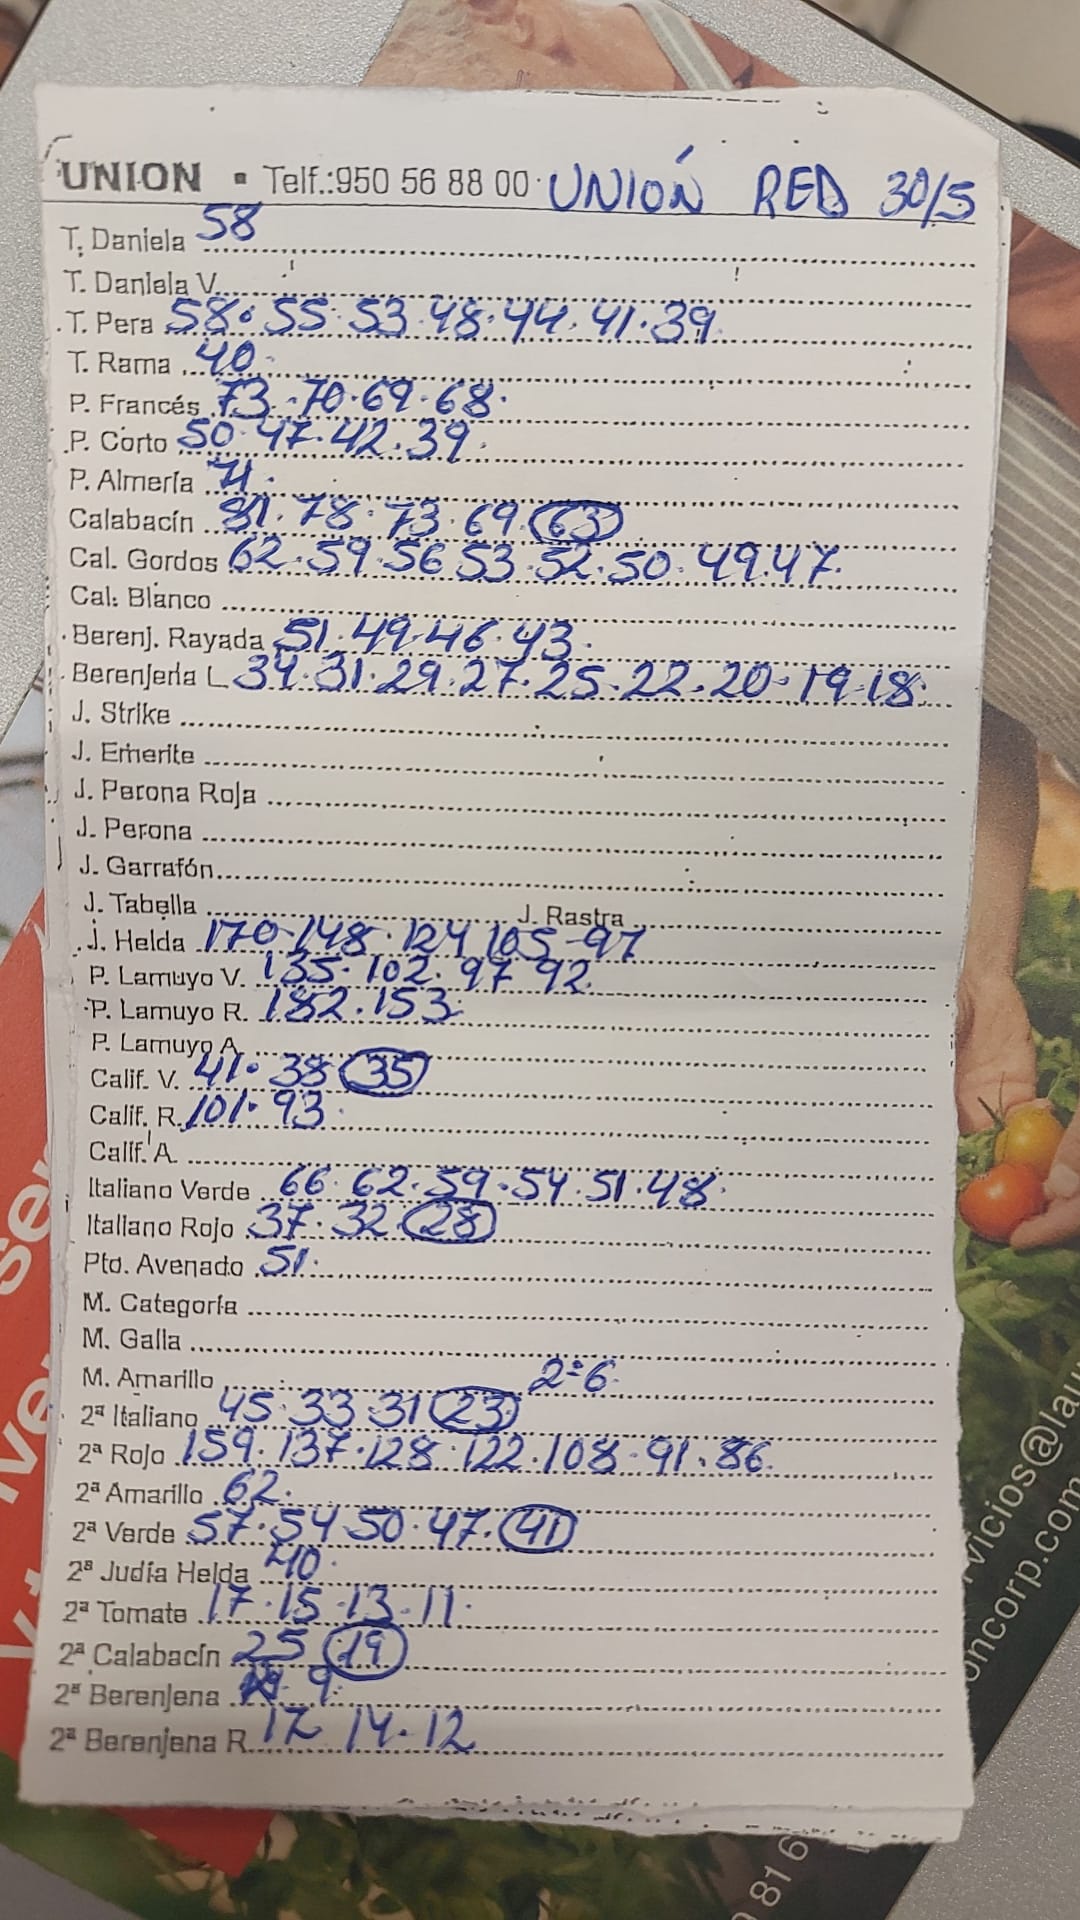 UNION ▪ Telf.:950 56 88 00 UNIÓN RED 30/5
T. Daniela 58
T. Daniela V.
T. Pera 58. 55. 53. 48. 44. 41. 39
T. Rama 40.
P. Francés 73.-70.69.68.
P. Corto 50.47.42.39.
P. Almería 71.
Calabacín 81.78.73.69. 63
Cal. Gordos 62.59.56 53.52.50.49.47.
Cal. Blanco
Berenj. Rayada 51.49.46.43.
Berenjena L 34.31.29.27.25.22.20.19.18.
J. Strike
J. Emerite
J. Perona Roja
J. Perona
J. Garrafón
J. Tabella J. Rastra
J. Helda 170-148.124 105-97
P. Lamuyo V. 135.102.97 92
P. Lamuyo R. 182.153
P. Lamuyo A
Calif. V. 41.38 35
Calif. R. 101.93
Calif. A.
Italiano Verde 66.62.59.54.51.48.
Italiano Rojo 37.32 28
Pto. Avenado 51.
M. Categoría
M. Galla
M. Amarillo 2ª6.
2ª Italiano 45.33 31 23
2ª Rojo 159.137.128.122.108.91.86.
2ª Amarillo 62.
2ª Verde 57.54 50.47. 41
2ª Judía Helda 40.
2ª Tomate 17.15.13.11.
2ª Calabacín 25 19
2ª Berenjena 9.
2ª Berenjena R. 17 14.12
vicios@lau
oncorp.com
816